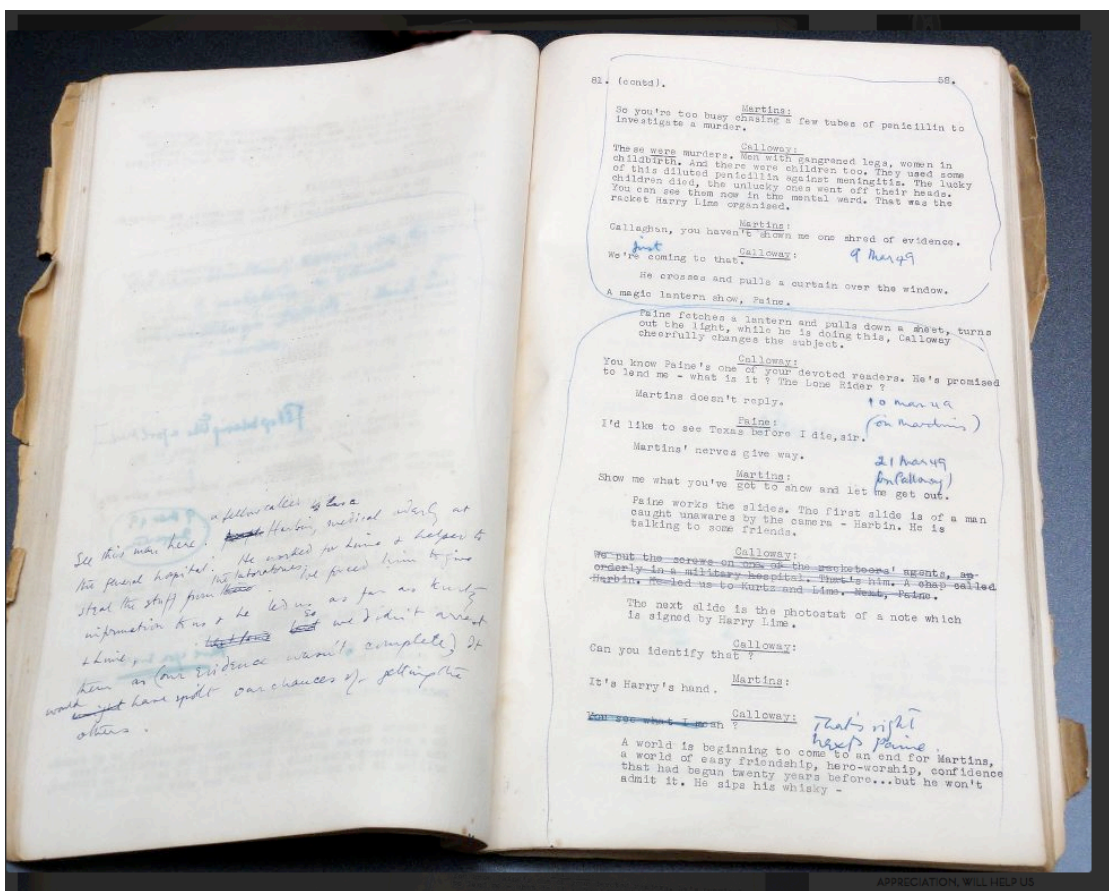 a fellow called
See this man here. Harbin, medical orderly at
the general hospital. He worked for Lime & helped to
steal the stuff from the laboratories. We forced him to give
information to us & he led us as far as Kurtz
& Lime. but so we didn't arrest
them as (our evidence wasn't complete) It
would might have spoilt our chances of getting the
others.
81. (contd). 58.
Martins:
So you're too busy chasing a few tubes of penicillin to
investigate a murder.
Calloway:
These were murders. Men with gangrened legs, women in
childbirth. And there were children too. They used some
of this diluted penicillin against meningitis. The lucky
children died, the unlucky ones went off their heads.
You can see them now in the mental ward. That was the
racket Harry Lime organised.
Martins:
Callaghan, you haven't shown me one shred of evidence.
just Calloway: 9 Mar 49
We're coming to that.
He crosses and pulls a curtain over the window.
A magic lantern show, Paine.
Paine fetches a lantern and pulls down a sheet, turns
out the light, while he is doing this, Calloway
cheerfully changes the subject.
Calloway:
You know Paine's one of your devoted readers. He's promised
to lend me - what is it ? The Lone Rider ?
Martins doesn't reply. 10 Mar 49
Paine: (on Martins)
I'd like to see Texas before I die,sir.
Martins' nerves give way. 21 Mar 49
Martins: (on Calloway)
Show me what you've got to show and let me get out.
Paine works the slides. The first slide is of a man
caught unawares by the camera - Harbin. He is
talking to some friends.
Calloway:
We put the screws on one of the racketeers' agents, an
orderly in a military hospital. That's him. A chap called
Harbin. He led us to Kurtz and Lime. Next, Paine.
The next slide is the photostat of a note which
is signed by Harry Lime.
Calloway:
Can you identify that ?
Martins:
It's Harry's hand.
Calloway: That's right
You see what I mean ? next Paine.
A world is beginning to come to an end for Martins,
a world of easy friendship, hero-worship, confidence
that had begun twenty years before...but he won't
admit it. He sips his whisky -
APPRECIATION, WILL HELP US